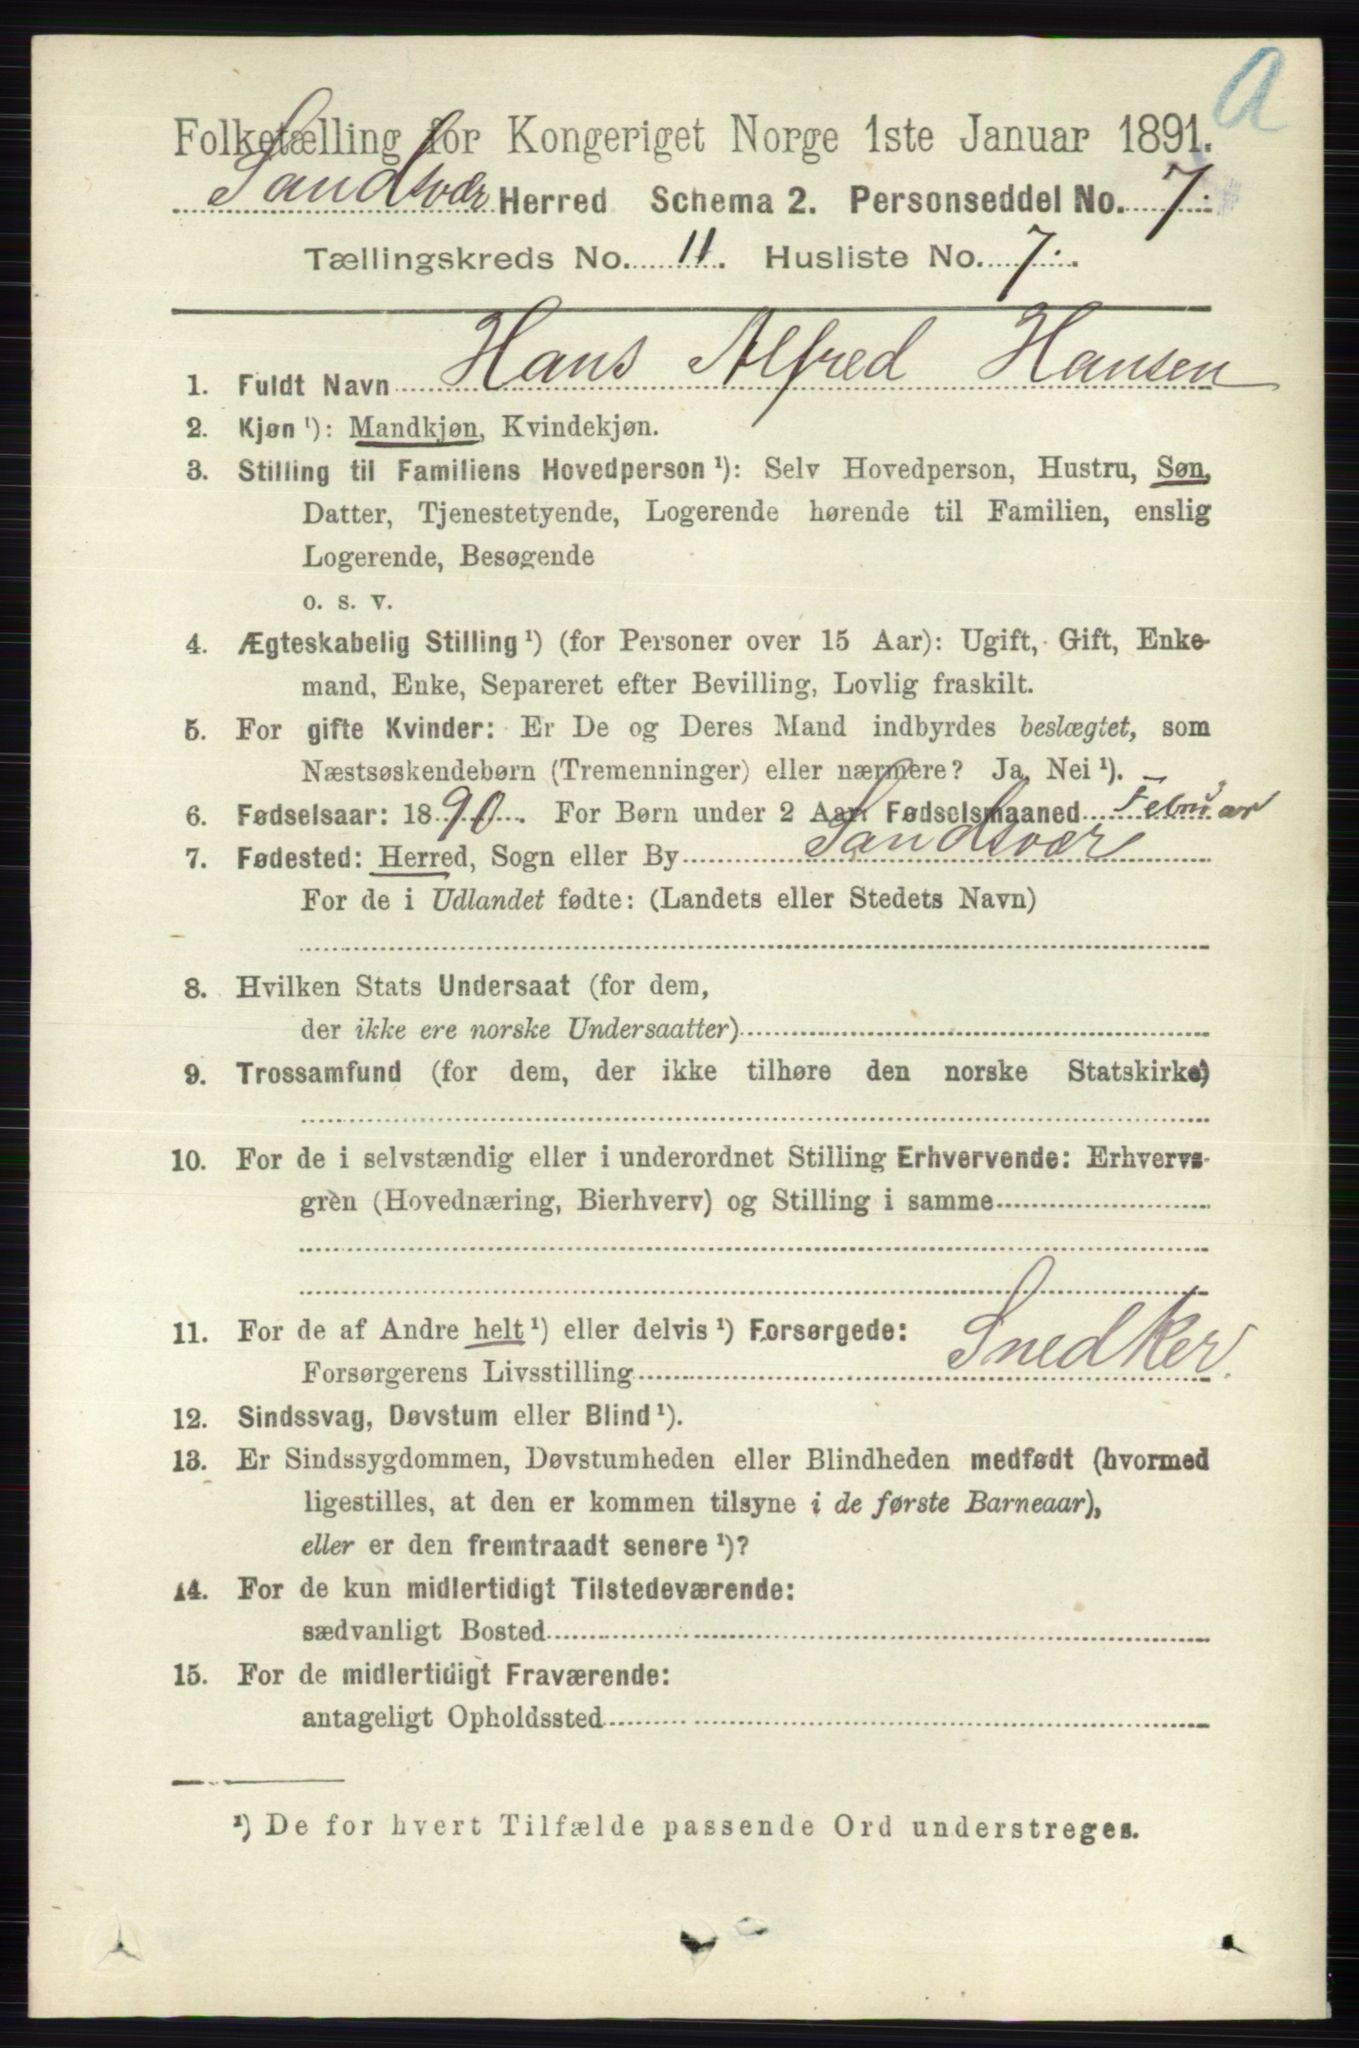 a
Folketælling for Kongeriget Norge 1ste Januar 1891.
Sandsvær Herred Schema 2. Personseddel No. 7.
Tællingskreds No. 11. Husliste No. 7.
1. Fuldt Navn Hans Alfred Hansen
2. Kjøn ¹): Mandkjøn, Kvindekjøn.
3. Stilling til Familiens Hovedperson ¹): Selv Hovedperson, Hustru, Søn,
Datter, Tjenestetyende, Logerende hørende til Familien, enslig
Logerende, Besøgende
o. s. v.
4. Ægteskabelig Stilling ¹) (for Personer over 15 Aar): Ugift, Gift, Enke-
mand, Enke, Separeret efter Bevilling, Lovlig fraskilt.
5. For gifte Kvinder: Er De og Deres Mand indbyrdes beslægtet, som
Næstsøskendebørn (Tremenninger) eller nærmere? Ja, Nei ¹).
6. Fødselsaar: 1890. For Børn under 2 Aar: Fødselsmaaned Februar
7. Fødested: Herred, Sogn eller By Sandsvær
For de i Udlandet fødte: (Landets eller Stedets Navn)
8. Hvilken Stats Undersaat (for dem,
der ikke ere norske Undersaatter)
9. Trossamfund (for dem, der ikke tilhøre den norske Statskirke)
10. For de i selvstændig eller i underordnet Stilling Erhvervende: Erhvervs-
gren (Hovednæring, Bierhverv) og Stilling i samme
11. For de af Andre helt ¹) eller delvis ¹) Forsørgede:
Forsørgerens Livsstilling Snedker
12. Sindssvag, Døvstum eller Blind ¹).
13. Er Sindssygdommen, Døvstumheden eller Blindheden medfødt (hvormed
ligestilles, at den er kommen tilsyne i de første Barneaar),
eller er den fremtraadt senere ¹)?
14. For de kun midlertidigt Tilstedeværende:
sædvanligt Bosted
15. For de midlertidigt Fraværende:
antageligt Opholdssted
¹) De for hvert Tilfælde passende Ord understreges.